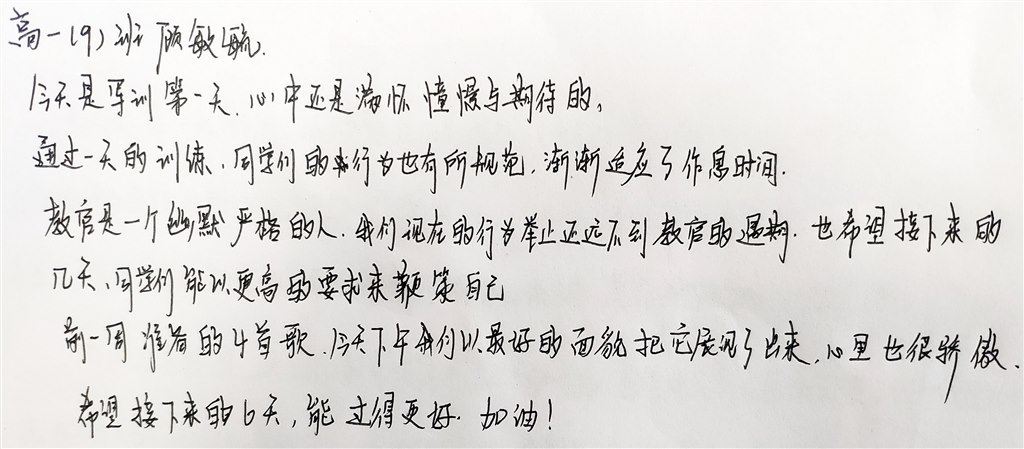 高一(9)班 顾敏毓.
今天是军训第一天.心中还是满怀憧憬与期待的。
通过一天的训练、同学们的行为也有所规范,渐渐适应了作息时间.
教官是一个幽默严格的人.我们现在的行为举止还远不到教官的预期.也希望接下来的
几天、同学们能以更高的要求来鞭策自己
前一周准备的4首歌.今天下午我们以最好的面貌把它展现了出来,心里也很骄傲.
希望接下来的6天,能过得更好.加油!